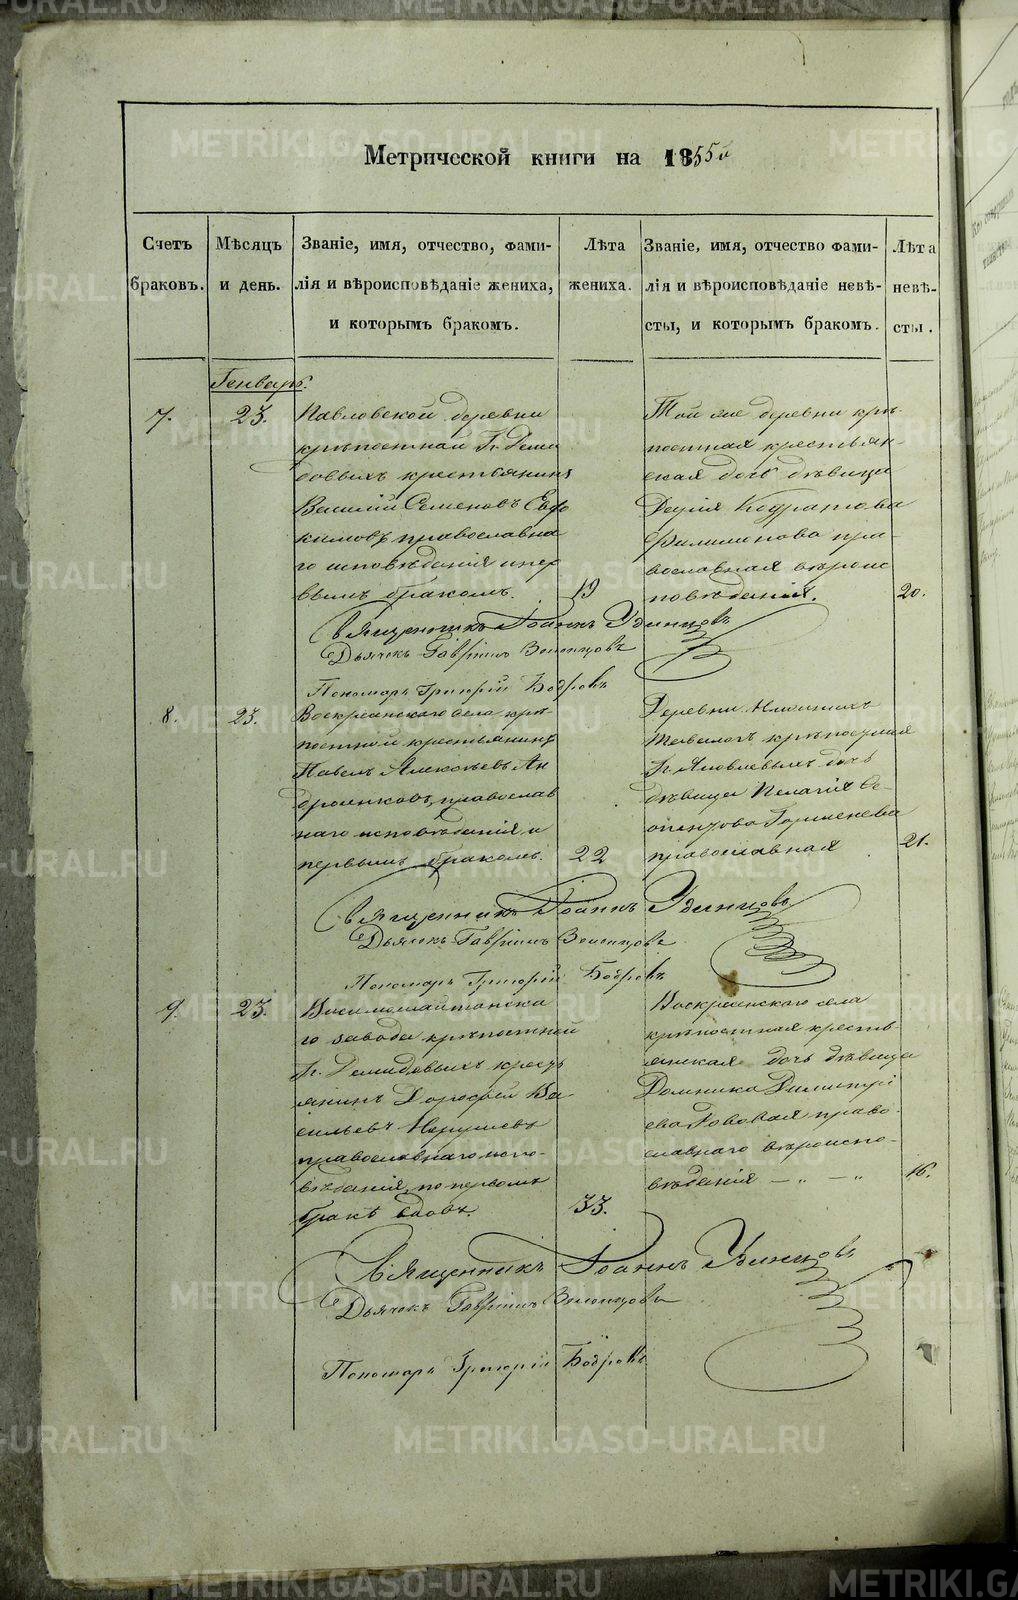 Метрической книги на 1855й
Счетъ браковъ.
Мѣсяцъ и день.
Званіе, имя, отчество, фами-
лія и вѣроисповѣданіе жениха,
и которымъ бракомъ.
Лѣта жениха.
Званіе, имя, отчество фами-
лія и вѣроисповѣданіе невѣ-
сты, и которымъ бракомъ.
Лѣта невѣ-
сты.
Генварь.
7.
23.
Павловской деревни
крѣпостной Г. Деми
довыхъ крестьянинъ
Василій Семеновъ Евфи
кимовъ православна
го исповѣданія и пер
вымъ бракомъ.
19
Той же деревни крѣ-
постная крестьян-
ская дочь дѣвица
Кодратова
Филимонова пра-
вославная вѣроис
повѣданія.
20.
Священникъ Іоаннъ Удинцовъ
Дьячокъ Гавріилъ
Пономарь Григорій Бобровъ
8.
23.
Воскресенскаго села крѣ-
постной крестьянинъ
Павелъ Алексѣевъ Ан
дроненковъ, православ
наго исповѣданія и
первымъ бракомъ.
22
Деревни
крѣпостная
Г. Яковлевыхъ дочь
дѣвица Пелагія
православная
21.
Священникъ Іоаннъ Удинцовъ
Дьячокъ Гавріилъ
Пономарь Григорій Бобровъ
9.
23.
го завода крѣпостной
Г. Демидовыхъ кресть
янинъ Дорофей Ва
сильевъ
православнаго испо-
вѣданія, по первомъ
бракѣ вдовъ.
33.
Воскресенскаго села
крѣпостная кресть-
янская дочь дѣвица
Домника Димитрі
ева право-
славнаго вѣроиспо-
вѣданія — „ — „
16.
Священникъ Іоаннъ Удинцовъ
Дьячокъ Гавріилъ
Пономарь Григорій Бобровъ
METRIKI.GASO-URAL.RU